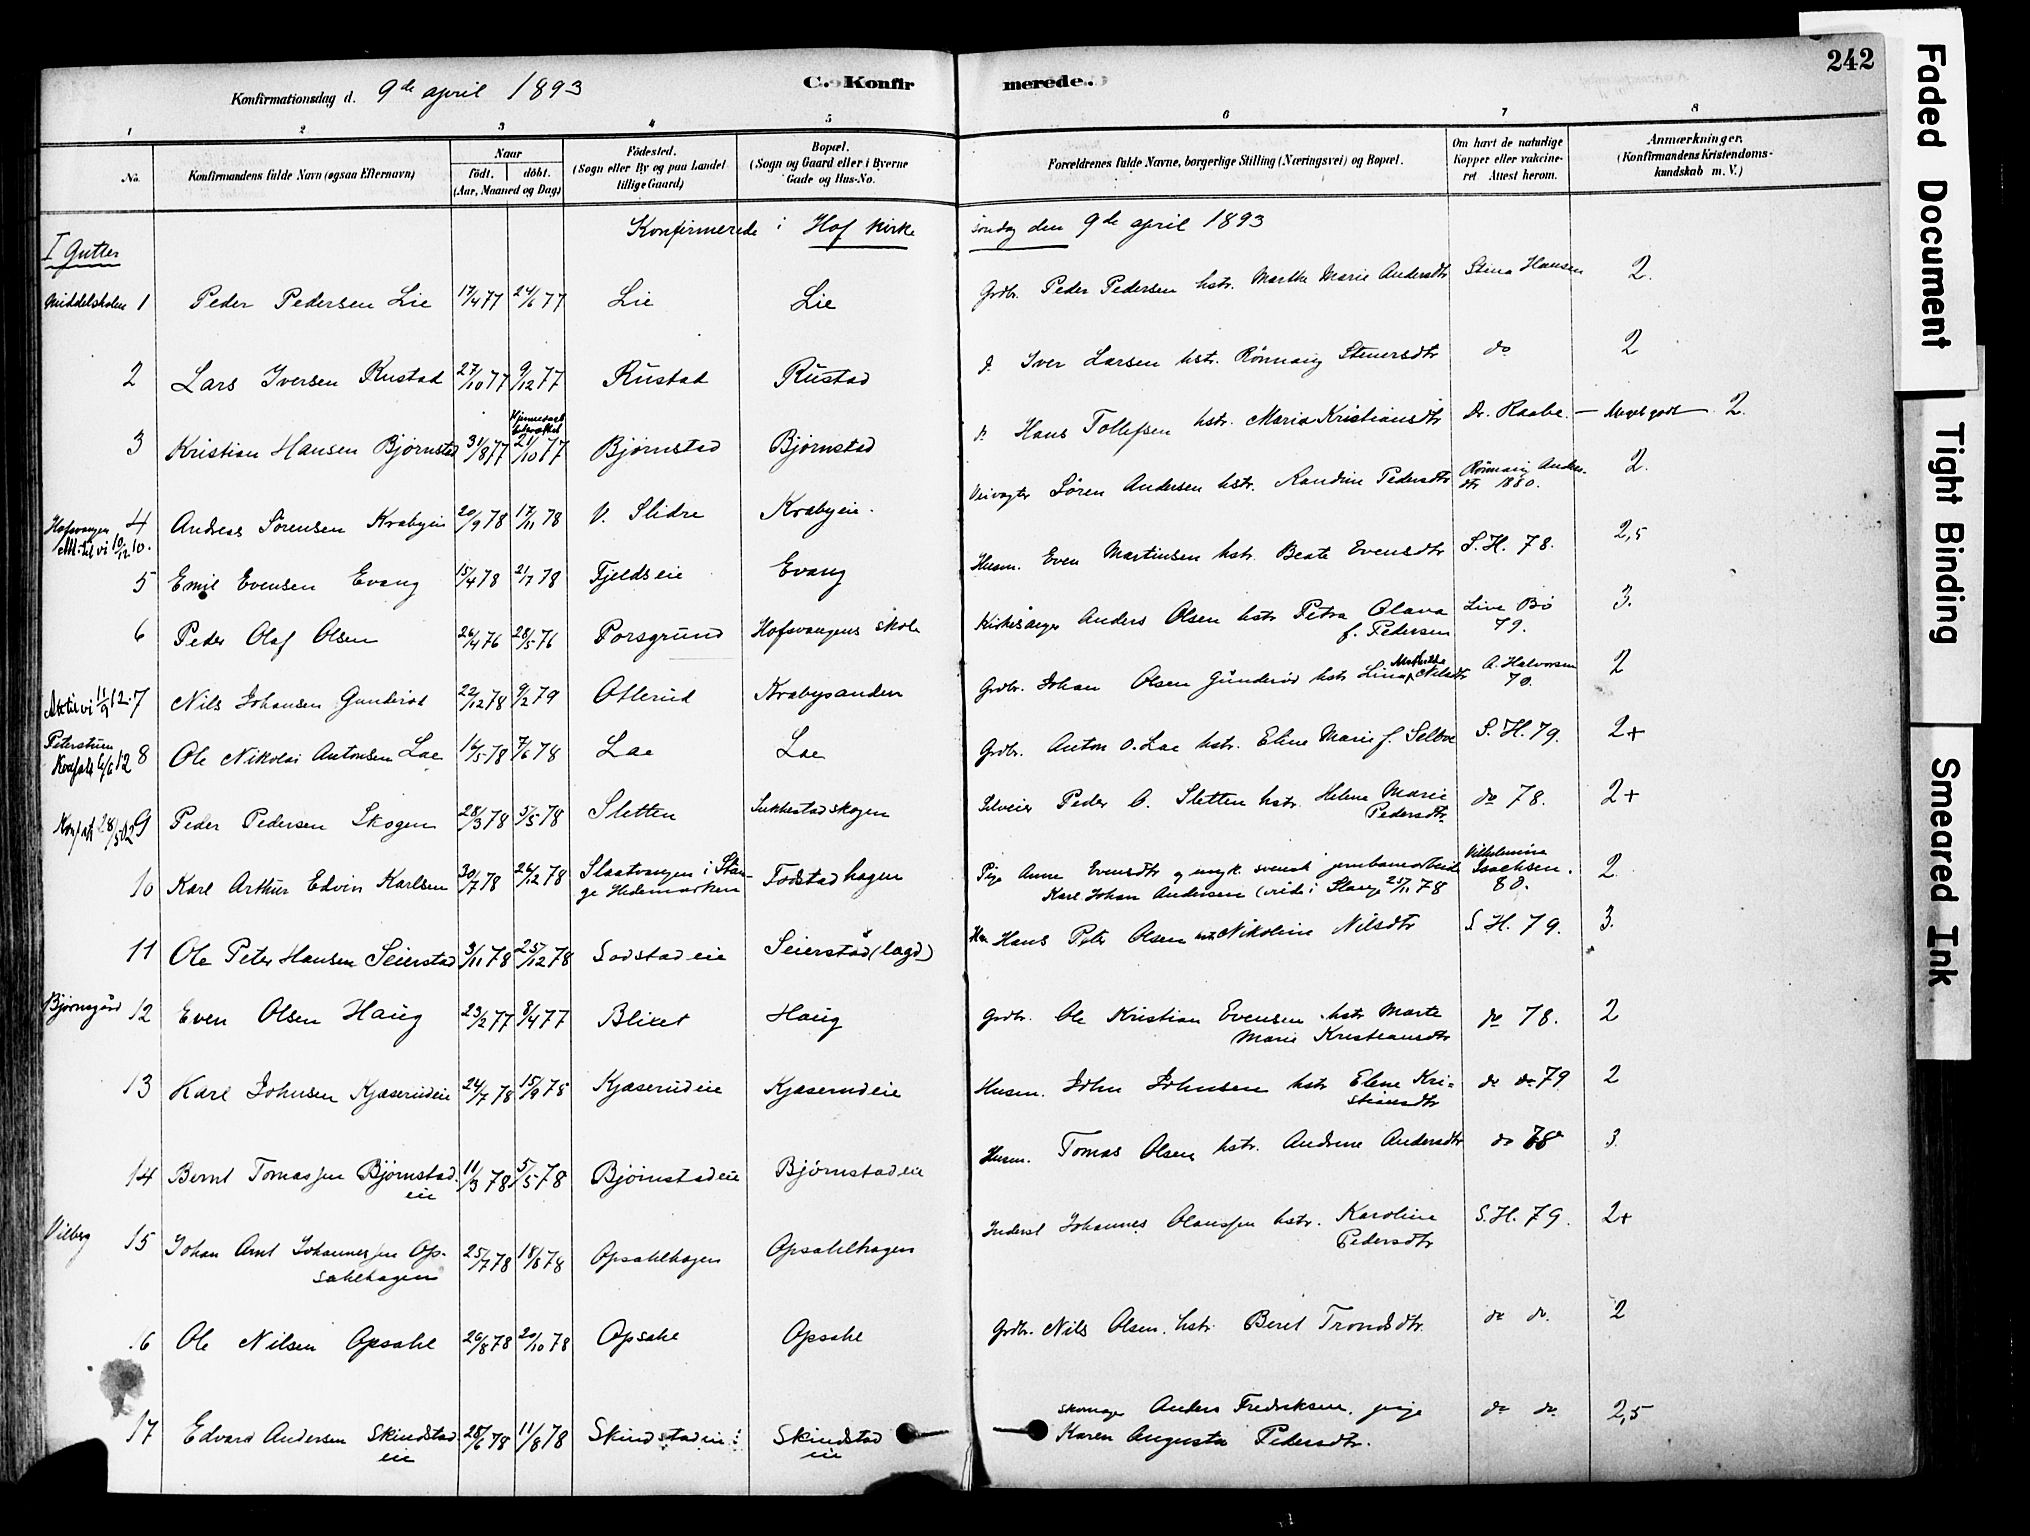 242
Konfirmationsdag d. 9de april 1893
C. Konfirmerede.
1 2 3 4 5 6 7 8
No. Konfirmandens fulde Navn (ogsaa Efternavn) Naar født. døbt. (Aar, Maaned og Dag) Fødested. (Sogn eller By og paa Landet tillige Gaard) Bopæl. (Sogn og Gaard eller i Byerne Gade og Hus-No. Forældrenes fulde Navne, borgerlige Stilling (Næringsvei) og Bopæl. Om havt de naturlige Kopper eller vaccineret Attest herom. Anmærkninger. (Konfirmandens Kristendomskundskab m. V.)
Konfirmerede i Hof kirke søndag den 9de april 1893
I Gutter
Middelskolen 1 Peder Pedersen Lie 17/4 77 24/6 77 Lie Lie Grdbr. Peder Pedersen hstr. Marthe Marie Andersdtr Stina Hansen 2.
2 Lars Iversen Rustad 27/10 77 9/12 77 Rustad Rustad d. Iver Larsen hstr. Rønnaug Stenersdtr do 2
3 Kristian Hansen Bjørnstad 31/8 77 Hjemmedøbt 21/10 77 Bjørnstad Bjørnstad d. Hans Tollefsen hstr. Maria Kristiansdtr Dr. Raabe. — Meget godt — 2.
Hofsvangen 4 Andreas Sørensen Krabyeie 20/9 78 17/11 78 V. Slidre Krabyeie. Veivogter Søren Andersen hstr. Randine Pedersdtr Rønnaug Andersdtr 1880. 2.
5 Emil Evensen Evang 15/4 78 21/7 78 Fjeldseie Evang Husm. Even Martinsen hstr. Beate Evensdtr S.H. 78. 2,5
6 Peder Olaf Olsen 26/4 76 28/5 76 Porsgrund Hofsvangens skole Kirkesanger Anders Olsen hstr Petra Olava f. Pedersen Live Bö 79. 3.
7 Nils Johansen Gunderød 22/12 78 9/2 79 Otterud Krabysanden Grdbr. Johan Olsen Gunderød hstr Lina Mathilde Nilsdtr A. Halvorsen 70. 2
8 Ole Nikolai Antonsen Lae 16/5 78 7/6 78 Lae Lae Grdbr. Anton O. Lae hstr. Eline Marie f. Selboe S.H. 79. 2+
9 Peder Pedersen Skogen 28/3 78 5/5 78 Sletten Sukkestadskogen Selveier Peder C. Sletten hstr. Helene Marie Pedersdtr. do 78. 2+
10 Karl Arthur Edvin Karlsen 30/7 78 26/12 78 Slaatvangen i Stange Hedemarken Todstadhagen Pige Anne Evensdtr og ungk. svensk jernbanearbeider Karl Johan Andersen (viede i Stange 25/11 78 Vilhelmine Isachsen. 80. 2
11 Ole Peter Hansen Seierstad 3/11 78 25/12 78 Sodstadeie Seierstad (lagd) Hans Peter Olsen hstr Nikoline Nilsdtr S.H. 79. 3.
Bjørnsgård 12 Even Olsen Haug 23/2 77 8/4 77 Bliket Haug Grdbr. Ole Kristian Evensen hstr Marte Marie Kristiansdtr do 78. 2
13 Karl Johnsen Kjæserudeie 24/7 78 15/9 78 Kjæserudeie Kjæserudeie Husm. John Johnsen hstr Elene Kristiansdtr do do 79 2
14 Bernt Tomassen Bjørnstadeie 11/3 78 5/5 78 Bjørnstadeie Bjørnstadeie Husm. Tomas Olsen hstr. Andrine Andersdtr do 78 3
Vilberg 15 Johan Arnt Johannessen Opsahlhagen 25/7 78 18/8 78 Opsahlhagen Opsahlhagen Inderst Johannes Olaussen hstr. Karoline Pedersdtr S.H. 79. 2+
16 Ole Nilsen Opsahl 26/8 78 20/10 78 Opsahl Opsahl Grdbr. Nils Olsen. hstr. Beret Trondsdtr. do do. 2
17 Edvard Andersen Skindstadeie 28/6 78 11/8 78 Skindstadeie Skindstadeie skomager Anders Fredriksen. pige Karen Augusta Pedersdtr. do do 2,5
Faded Document
Tight Binding
Smeared Ink